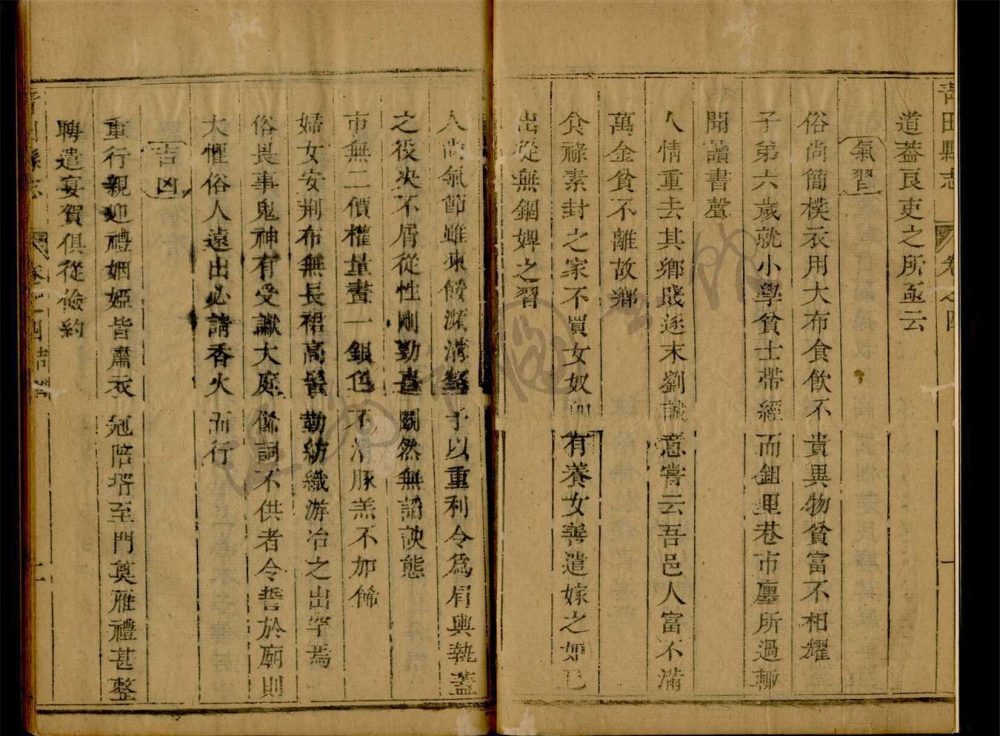 青田縣志
卷之四
一
道葢良吏之所亟云
氣習
俗尚簡樸衣用大布食飲不貴異物貧富不相耀
子弟六歲就小學貧士帶經而鉏里巷市廛所過輙
聞讀書聲
人情重去其鄉賤逐末劉誠意嘗云吾邑人富不滿
萬金貧不離故鄉
食祿素封之家不買女奴 有養女善遣嫁之如己
出從無錮婢之習
人尚氣節雖凍餒瀕溝壑予以重利令爲肩輿執葢
之役決不屑從性剛勤 闕然無諂諛態
市無二價權量畫一銀色不 豚羔不加餙
婦女安荆布無長裙高髻勤紡織游冶之出罕焉
俗畏事鬼神有受讞大庭 詞不供者令誓於廟則
大懼俗人遠出必請香火而行
吉凶
重行親迎禮姻婭皆肅衣冠陪壻至門奠雁禮甚整
聘遣宴賀俱從儉約
青田縣志
卷之四
二